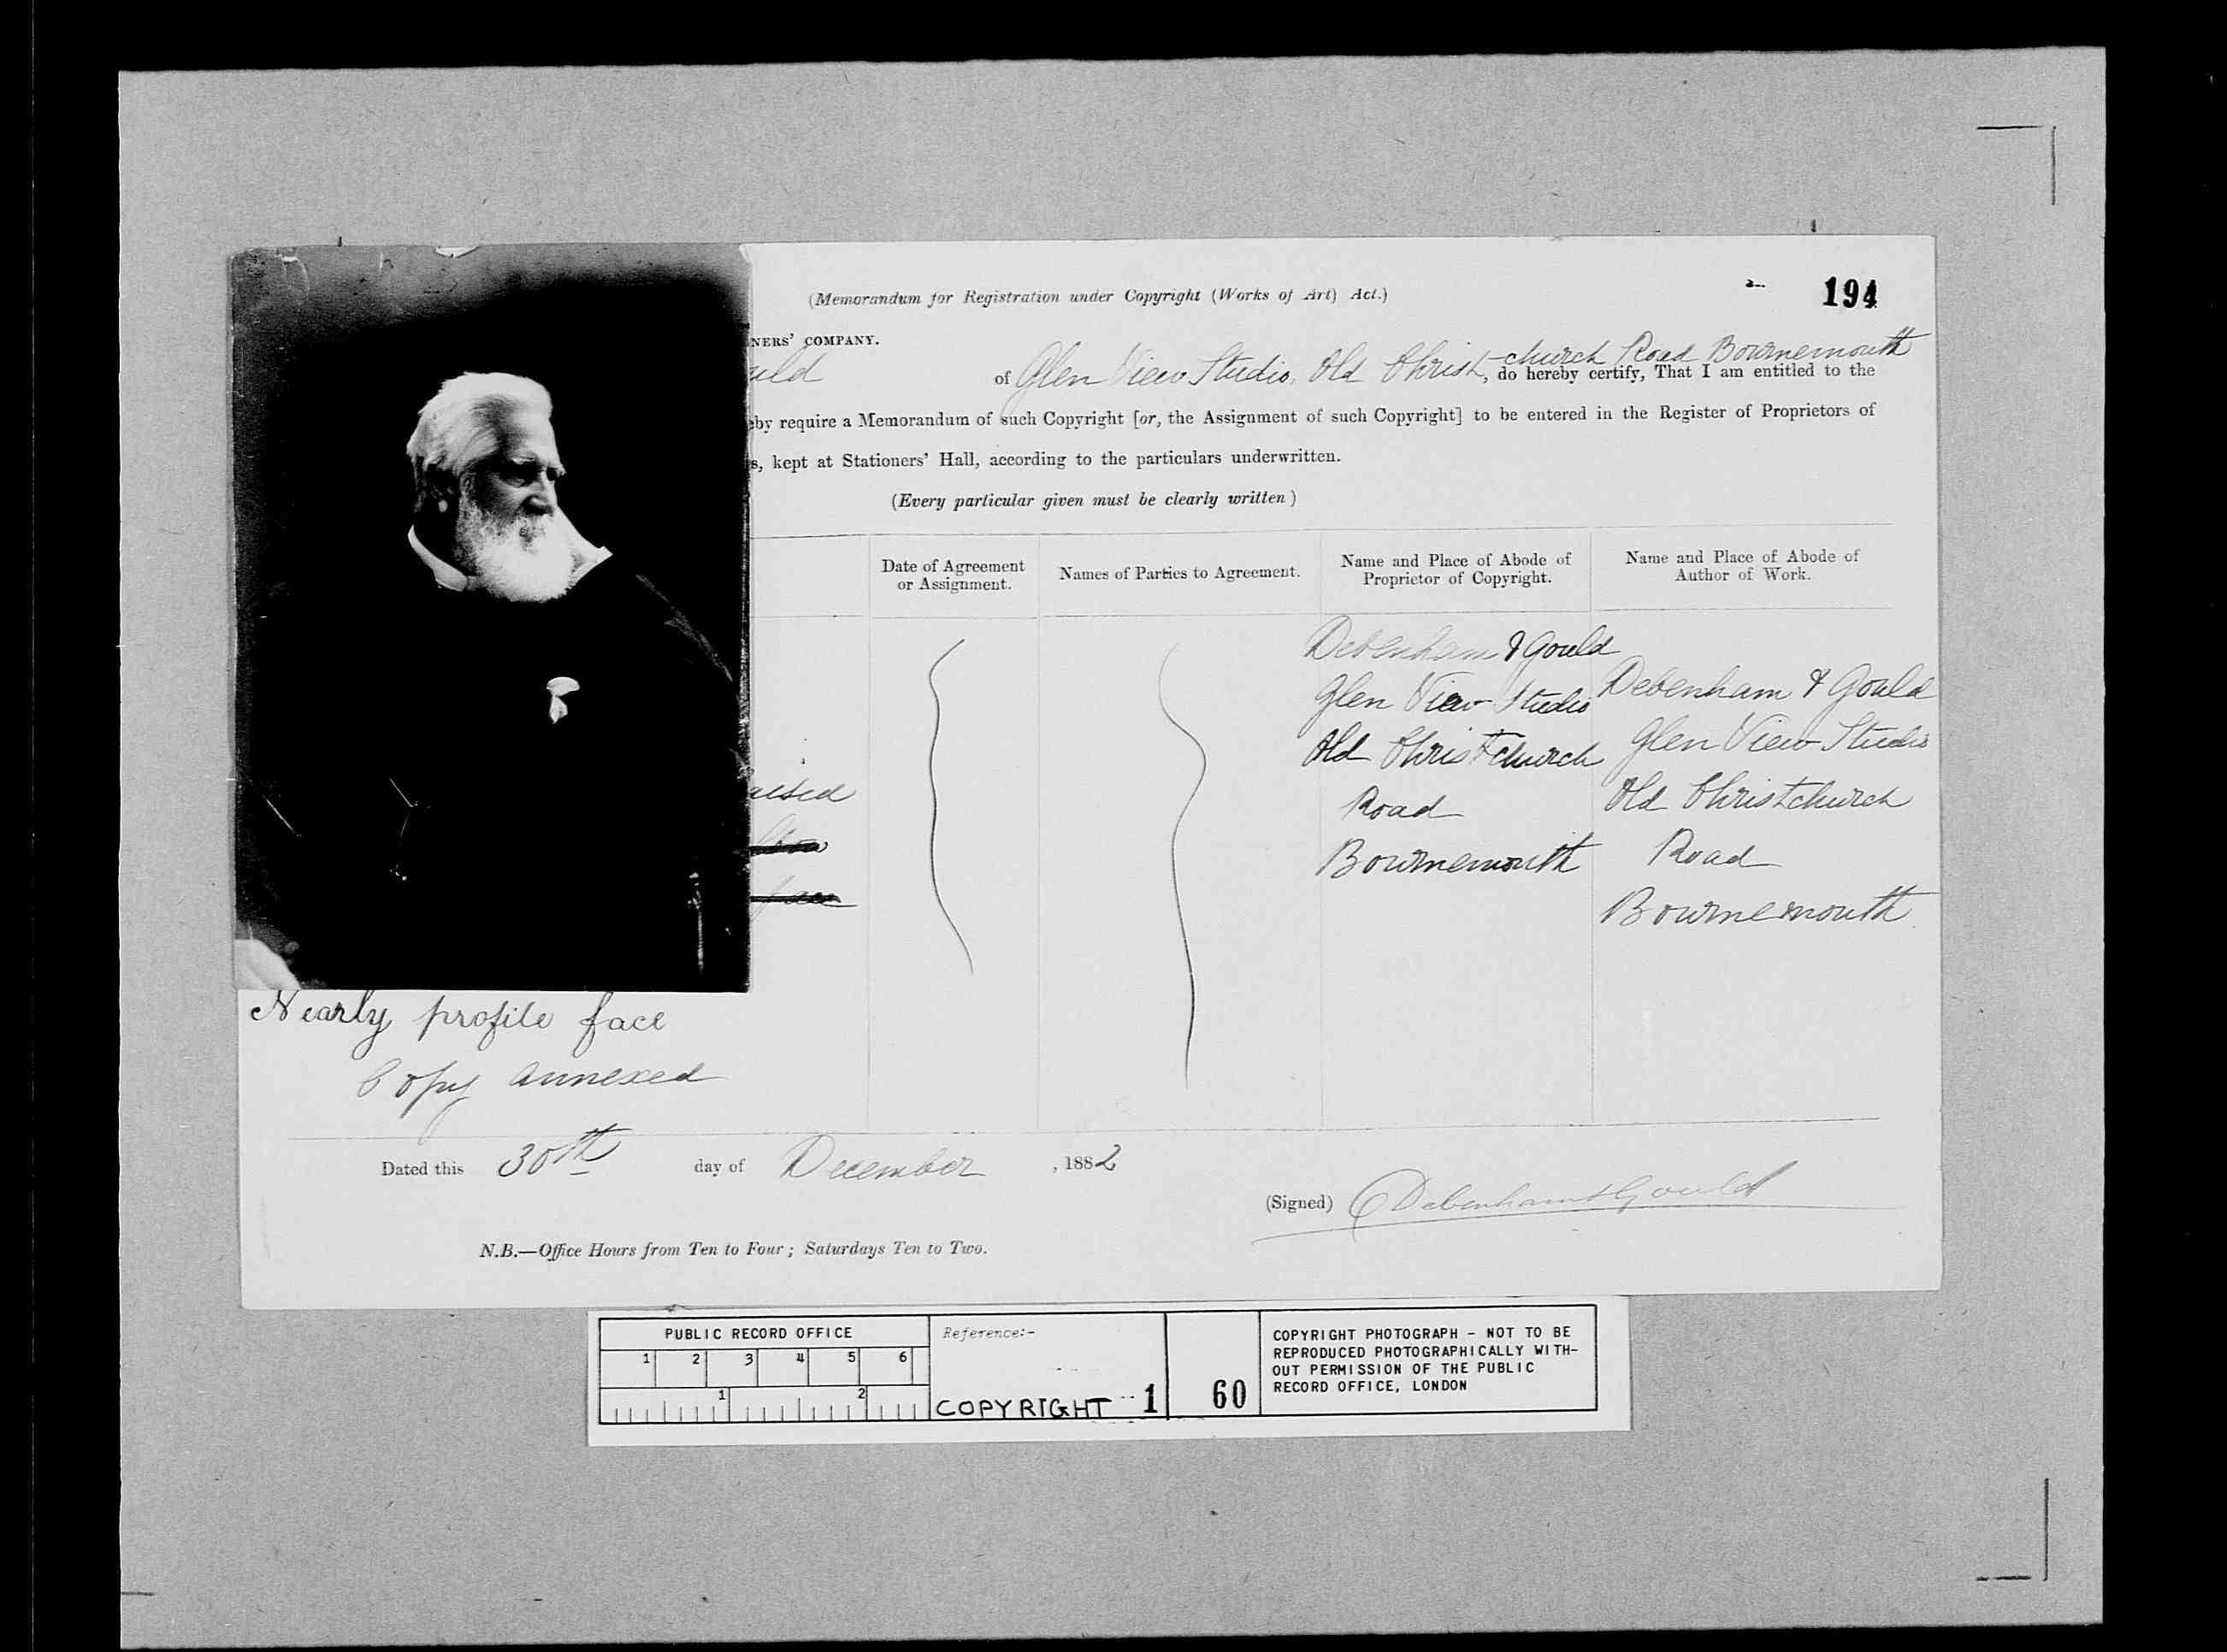 (Memorandum for Registration under Copyright (Works of Art) Act.)
194
NERS' COMPANY.
uld of Glen View Studio, Old Christ-church Road Bournemouth, do hereby certify, That I am entitled to the
eby require a Memorandum of such Copyright [or, the Assignment of such Copyright] to be entered in the Register of Proprietors of
s, kept at Stationers' Hall, according to the particulars underwritten.
(Every particular given must be clearly written)
Date of Agreement
or Assignment.
Names of Parties to Agreement.
Name and Place of Abode of
Proprietor of Copyright.
Name and Place of Abode of
Author of Work.
Debenham & Gould
Glen View Studio
Old Christchurch
Road
Bournemouth
Debenham & Gould
Glen View Studio
Old Christchurch
Road
Bournemouth
aised
face
Nearly profile face
Copy annexed
Dated this 30th day of December, 1882
(Signed) Debenham & Gould
N.B.—Office Hours from Ten to Four; Saturdays Ten to Two.
PUBLIC RECORD OFFICE
1 2 3 4 5 6
1 2
Reference:-
COPYRIGHT 1
60
COPYRIGHT PHOTOGRAPH - NOT TO BE
REPRODUCED PHOTOGRAPHICALLY WITH-
OUT PERMISSION OF THE PUBLIC
RECORD OFFICE, LONDON